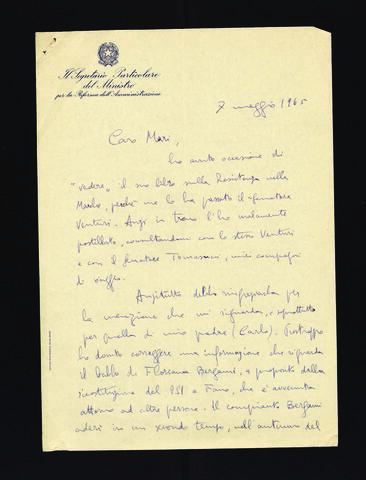 Il Segretario Particolare
del Ministro
per la Riforma dell'Amministrazione
7 maggio 1965
Caro Mari,
ho avuto occasione di
"vedere" il suo libro sulla Resistenza nelle
Marche, perché me lo ha passato il senatore
Venturi. Anzi in treno l'ho
postillato, consultandomi con lo stesso Venturi
e con il senatore Tomassini, miei compagni
di viaggio.
Anzitutto debbo ringraziarla per
la menzione che mi riguarda, e soprattutto
per quella di mio padre (Carlo). Purtroppo
ho dovuto correggere una informazione che riguarda
il babbo di Floriana Bergami, a proposito della
ricostituzione del PSI a Fano, che è avvenuta
attorno ad altre persone. Il compianto Bergami
aderì in un secondo tempo, nell'autunno del